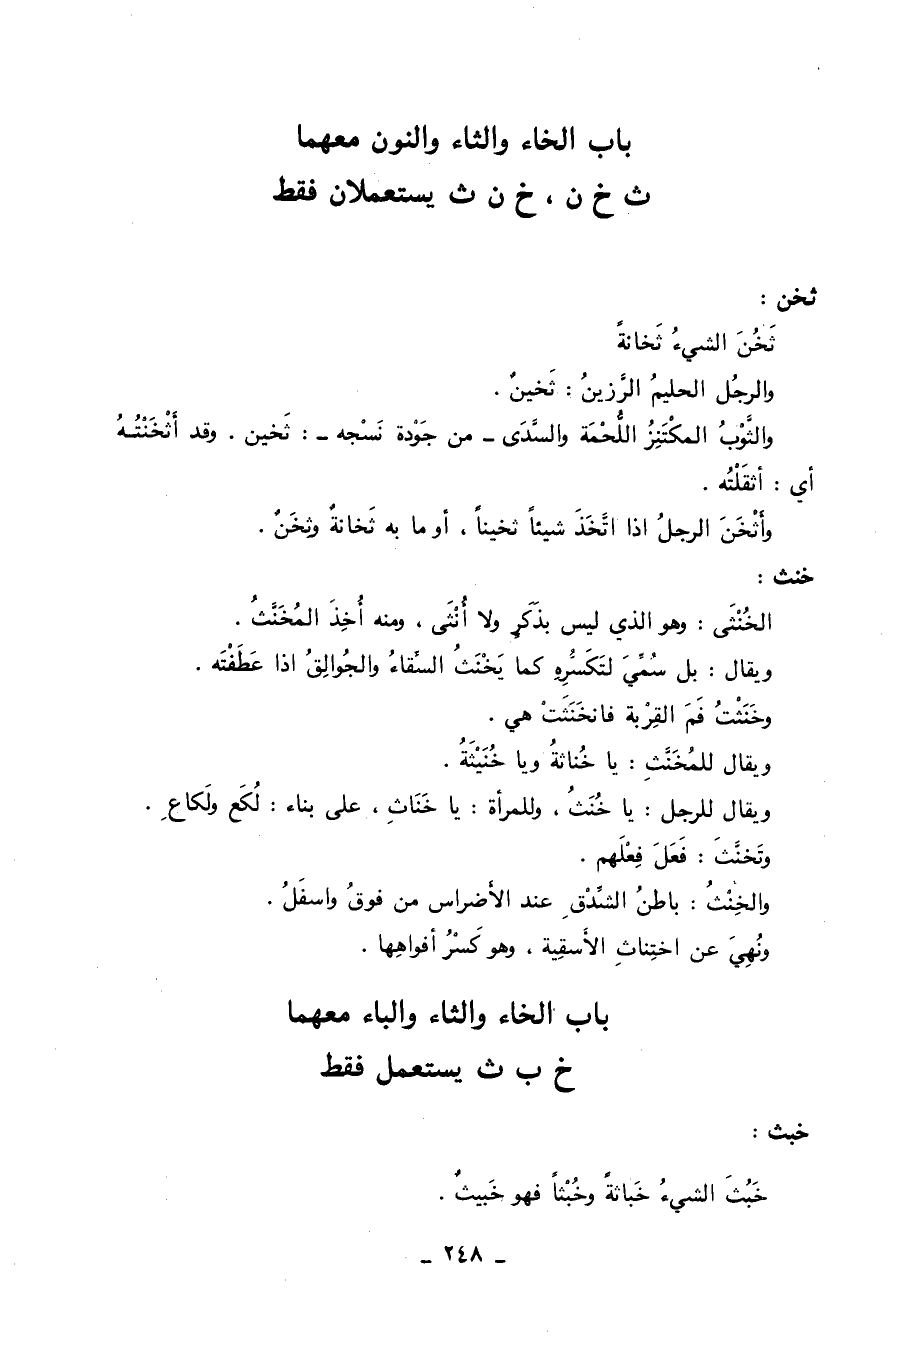 باب الخاء والثاء والنون معهما
ث خ ن ، خ ن ث يستعملان فقط
ثخن :
ثَخُنَ الشيءُ ثَخانةً
والرجُل الحليمُ الرَّزينُ : ثَخينٌ .
والثَّوْبُ المكْتَنِزُ اللُّحْمَة والسَّدَى ـ من جَوْدة نَسْجه ـ : ثَخين . وقد أَثْخَنْتُـهُ
أي : أثقَلْتُه .
وأَثْخَنَ الرجلُ اذا اتَّخَذَ شيئاً ثخيناً ، أو ما به ثَخانةٌ وثِخَنٌ .
خنث :
الخُنْثَى : وهو الذي ليس بذَكَرٍ ولا أُنْثَى ، ومنه أُخِذَ المُخَنَّثُ .
ويقال : بل سُمِّيَ لتَكَسُّرِهِ كما يَخْنَثُ السِّقاءُ والجُوالِقُ اذا عَطَفْتَه .
وخَنَثْتُ فَمَ القِرْبة فانخَنَثَتْ هي .
ويقال للمُخَنَّثِ : يا خُناثةُ ويا خُنَيْثَةُ .
ويقال للرجل : يا خُنَثُ ، وللمرأة : يا خَنَاثِ ، على بناء : لُكَع ولَكاعِ .
وتَخنَّثَ : فَعَلَ فِعْلَهم .
والخِنْثُ : باطنُ الشِّدْقِ عند الأضراس من فوقُ واسفَلُ .
ونُهِيَ عن اختِناثِ الأسقِية ، وهو كَسْرُ أفواهِها .
باب الخاء والثاء والباء معهما
خ ب ث يستعمل فقط
خبث :
خَبُثَ الشيءُ خَباثةً وخُبْثاً فهو خَبيثٌ .
ـ ٢٤٨ ـ